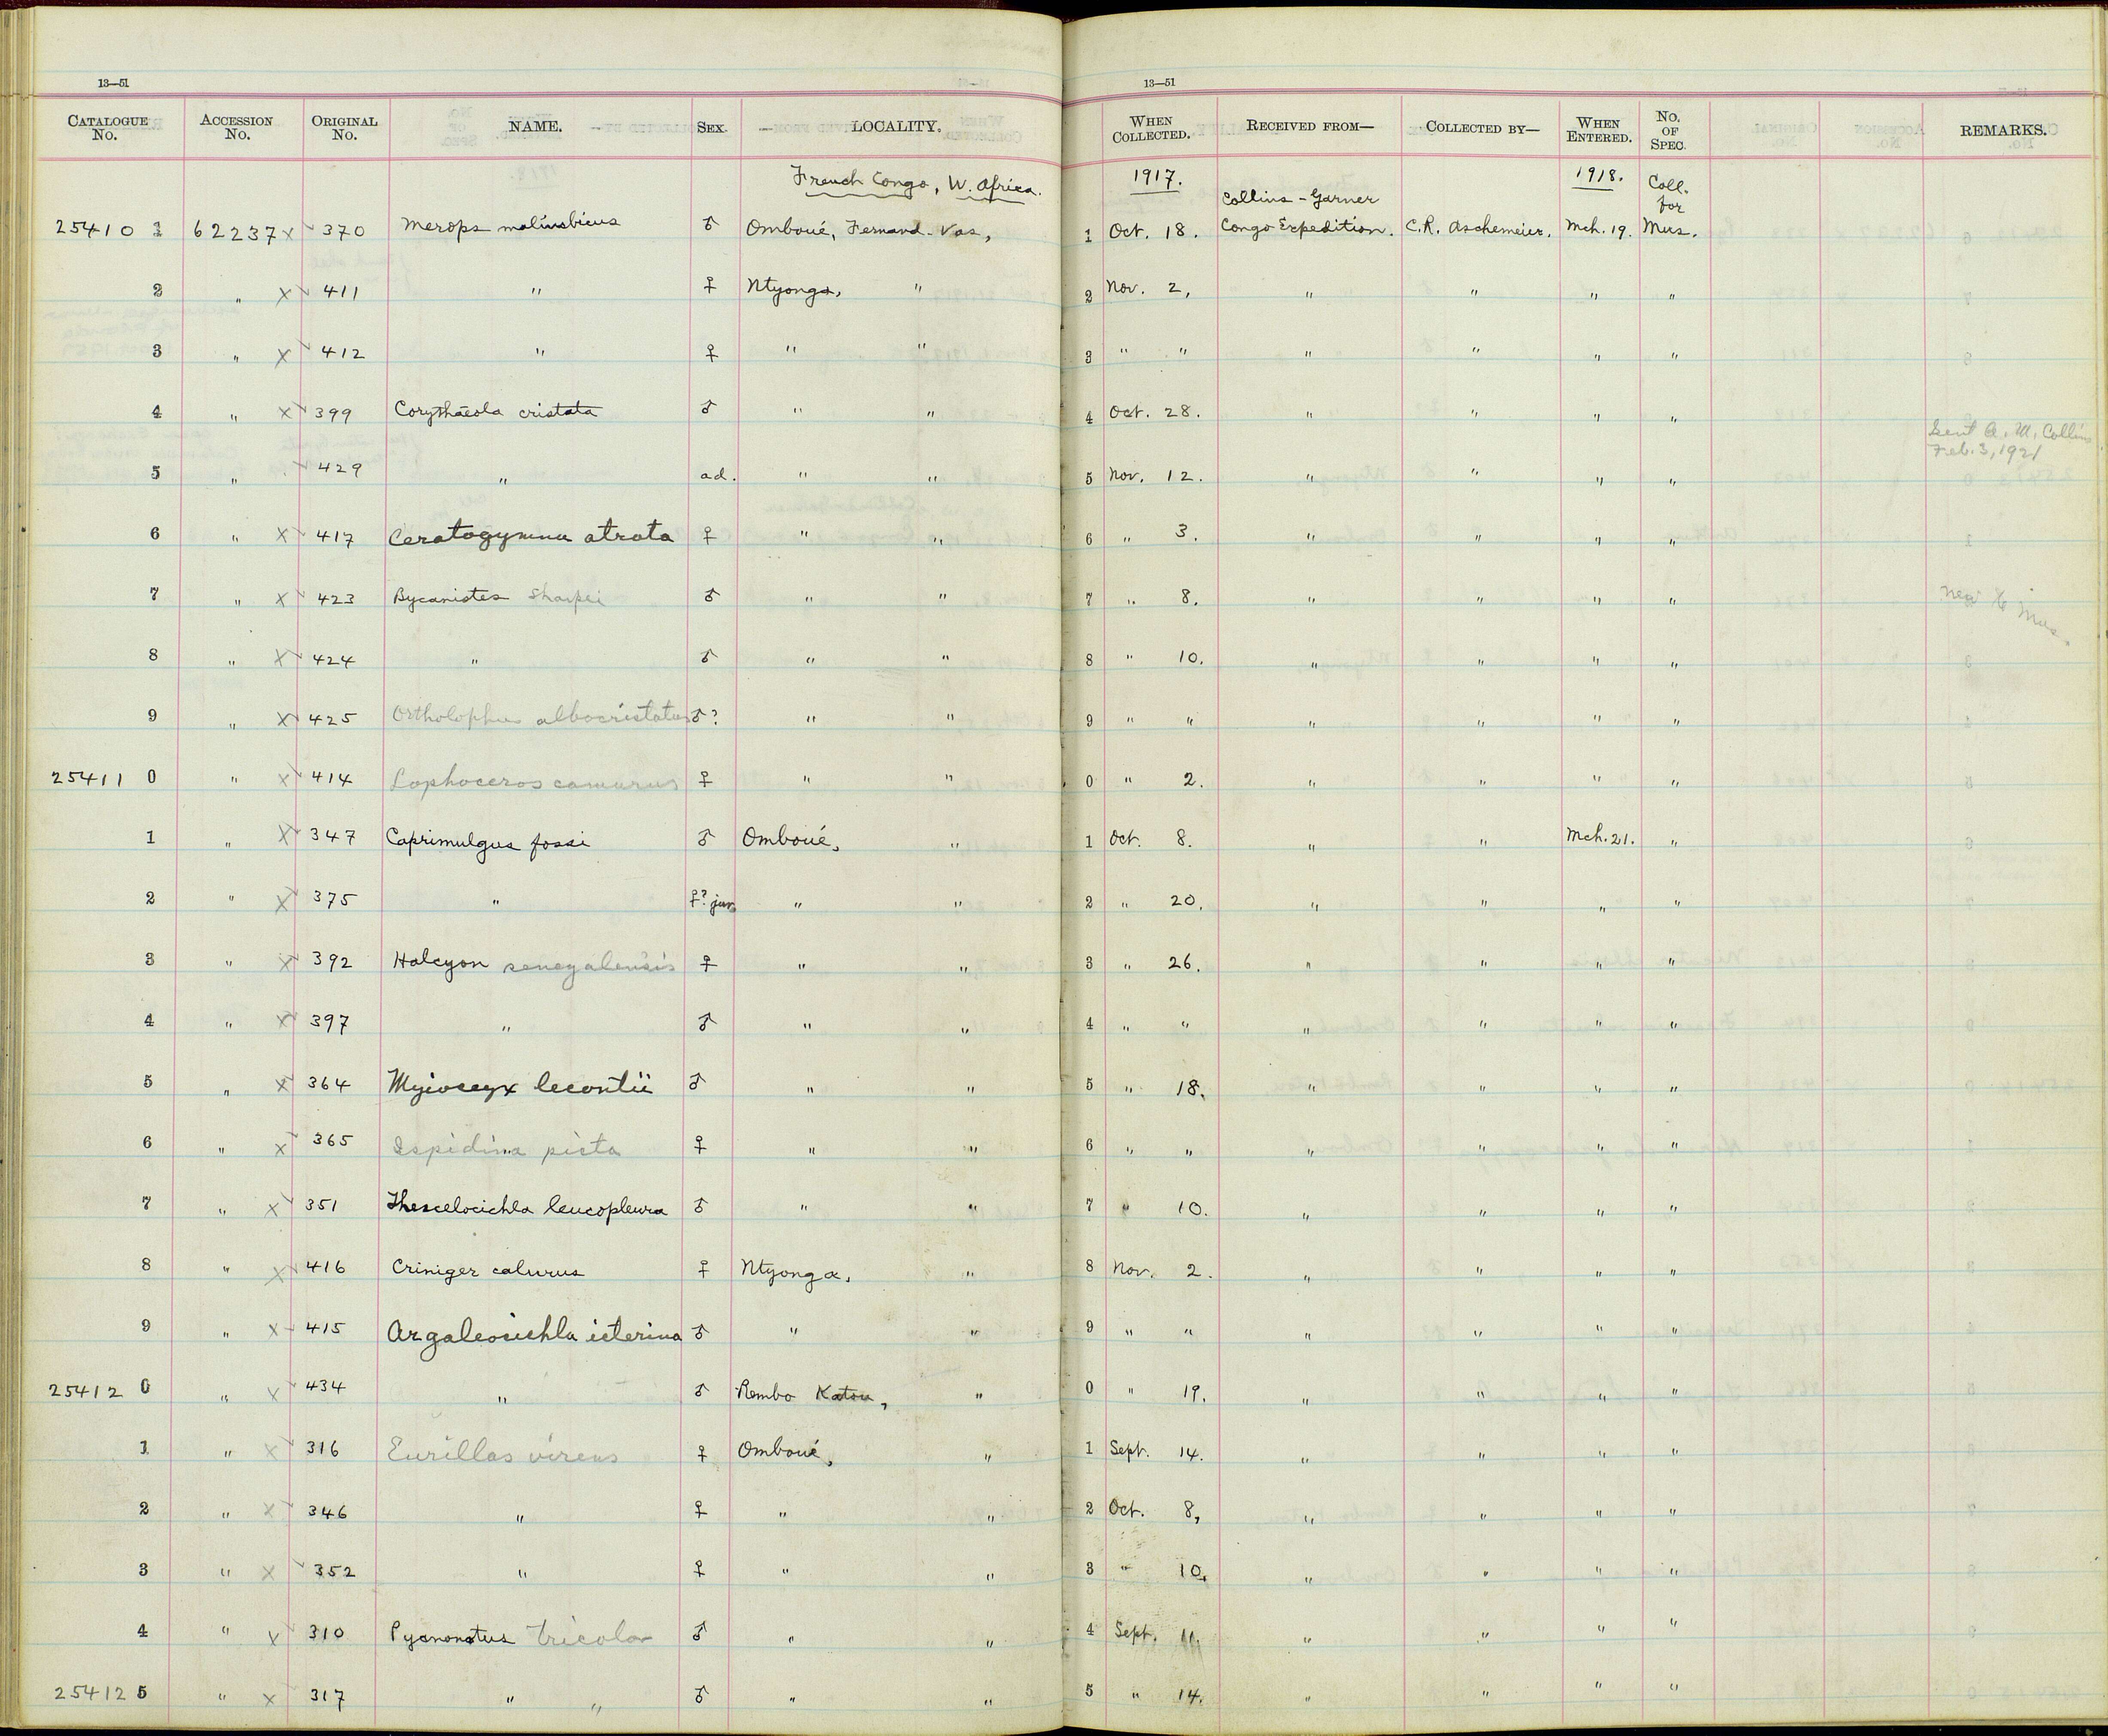 13—51 13—51
CATALOGUE No. ACCESSION No. ORIGINAL No. NAME. SEX. LOCALITY. WHEN COLLECTED. RECEIVED FROM— COLLECTED BY— WHEN ENTERED. No. OF SPEC. REMARKS.
French Congo, W. Africa. 1917. Collins-Garner 1918. Coll. for
25410 1 62237 x 370 Merops malimbicus ♂ Omboué, Fernand-Vas, 1 Oct. 18. Congo Expedition. C.R. Aschemeier. Mch. 19. Mus.
2 " x 411 " ♀ Ntyonga, " 2 Nov. 2, " " " "
3 " x 412 " ♀ " " 3 " " " " " "
4 " x 399 Corythaeola cristata ♂ " " 4 Oct. 28. " " " "
5 " 429 " ad. " " 5 Nov. 12. " " " " Sent A. M. Collins Feb. 3, 1921
6 " x 417 Ceratogymna atrata ♀ " " 6 " 3. " " " "
7 " x 423 Bycanistes sharpei ♂ " " 7 " 8. " " " " New to Mus.
8 " x 424 " ♂ " " 8 " 10. " " " "
9 " x 425 Ortholophus albocristatus ♂? " " 9 " " " " " "
25411 0 " x 414 Lophoceros camurus ♀ " " 0 " 2. " " " "
1 " x 347 Caprimulgus fossi ♂ Omboué, " 1 Oct. 8. " " Mch. 21. "
2 " x 375 " ♀? juv " " 2 " 20. " " " "
3 " x 392 Halcyon senegalensis ♀ " " 3 " 26. " " " "
4 " x 397 " ♂ " " 4 " " " " " "
5 " x 364 Myioceyx lecontii ♂ " " 5 " 18. " " " "
6 " x 365 Ispidina picta ♀ " " 6 " " " " " "
7 " x 351 Thescelocichla leucopleura ♂ " " 7 " 10. " " " "
8 " x 416 Criniger calurus ♀ Ntyonga, " 8 Nov. 2. " " " "
9 " x 415 Argaleocichla icterina ♂ " " 9 " " " " " "
25412 0 " x 434 " ♂ Rembo Katou, " 0 " 19. " " " "
1 " x 316 Eurillas virens ♀ Omboué, " 1 Sept. 14. " " " "
2 " x 346 " ♀ " " 2 Oct. 8, " " " "
3 " x 352 " ♀ " " 3 " 10. " " " "
4 " x 310 Pycnonotus tricolor ♂ " " 4 Sept. 11. " " " "
25412 5 " x 317 " " ♂ " " 5 " 14. " " " "